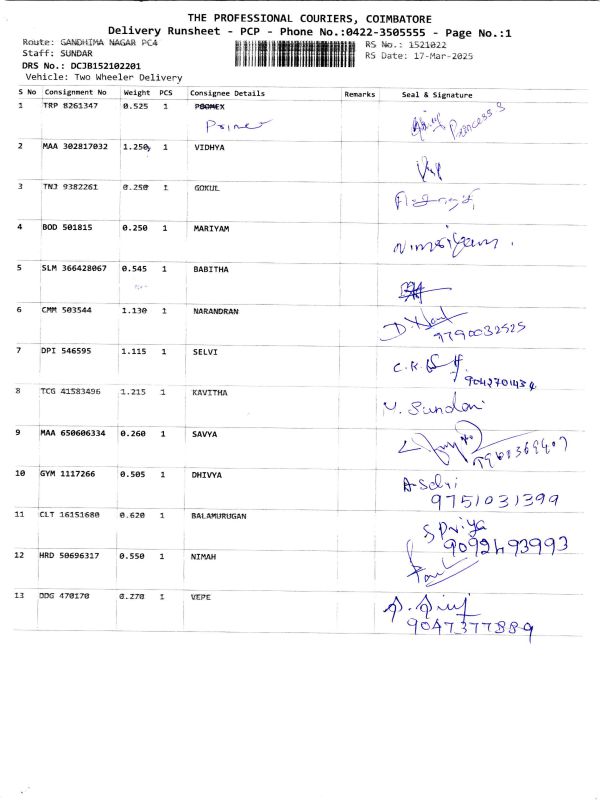 THE PROFESSIONAL COURIERS, COIMBATORE
Delivery Runsheet - PCP - Phone No.:0422-3505555 - Page No.:1
Route: GANDHIMA NAGAR PC4
RS No.: 1521022
Staff: SUNDAR
RS Date: 17-Mar-2025
DRS No.: DCJB152102201
Vehicle: Two Wheeler Delivery
S No Consignment No Weight PCS Consignee Details Remarks Seal & Signature
1 TRP 8261347 0.525 1 POOMEX
Princess S
2 MAA 302817032 1.250 1 VIDHYA
3 TNJ 9382261 0.250 1 GOKUL
4 BOD 501815 0.250 1 MARIYAM
5 SLM 366428067 0.545 1 BABITHA
6 CMM 503544 1.130 1 NARANDRAN
9790032525
7 DPI 546595 1.115 1 SELVI
8 TCG 41583496 1.215 1 KAVITHA
M. Sundari
9 MAA 650606334 0.260 1 SAVYA
10 GYM 1117266 0.505 1 DHIVYA
A. Selvi
9751031399
11 CLT 16151680 0.620 1 BALAMURUGAN
S Priya
9092493993
12 HRD 50696317 0.550 1 NIMAH
13 DDG 470170 0.270 1 VEPE
9047377889